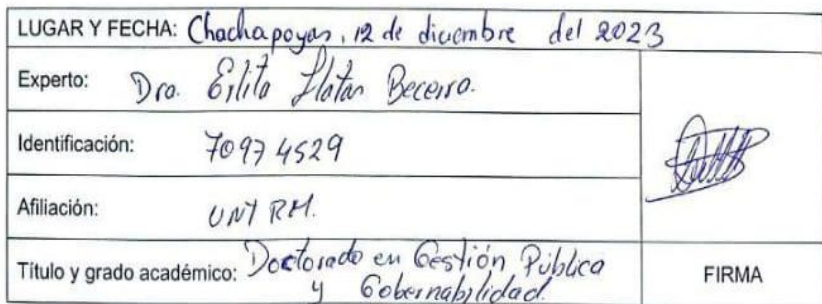 LUGAR Y FECHA: Chachapoyas, 12 de diciembre del 2023
Experto: Dra. Erlita Llatan Becerra.
Identificación: 70974529
Afiliación: UNTRM.
Título y grado académico: Doctorado en Gestión Pública
y Gobernabilidad.
FIRMA